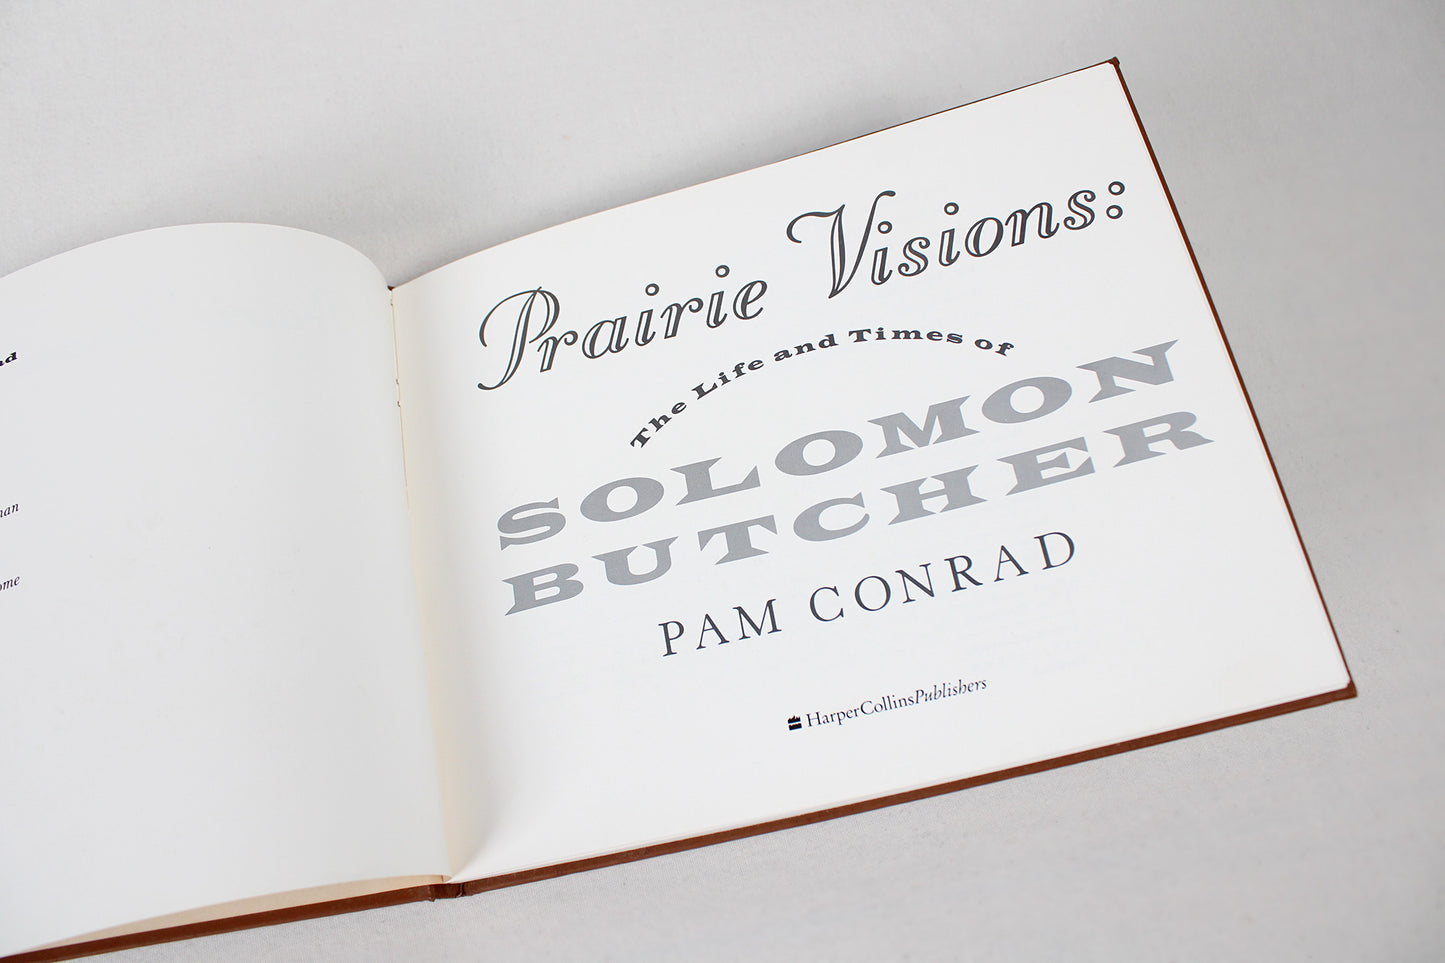 Prairie Visions:
The Life and Times of
SOLOMON
BUTCHER
PAM CONRAD
HarperCollinsPublishers